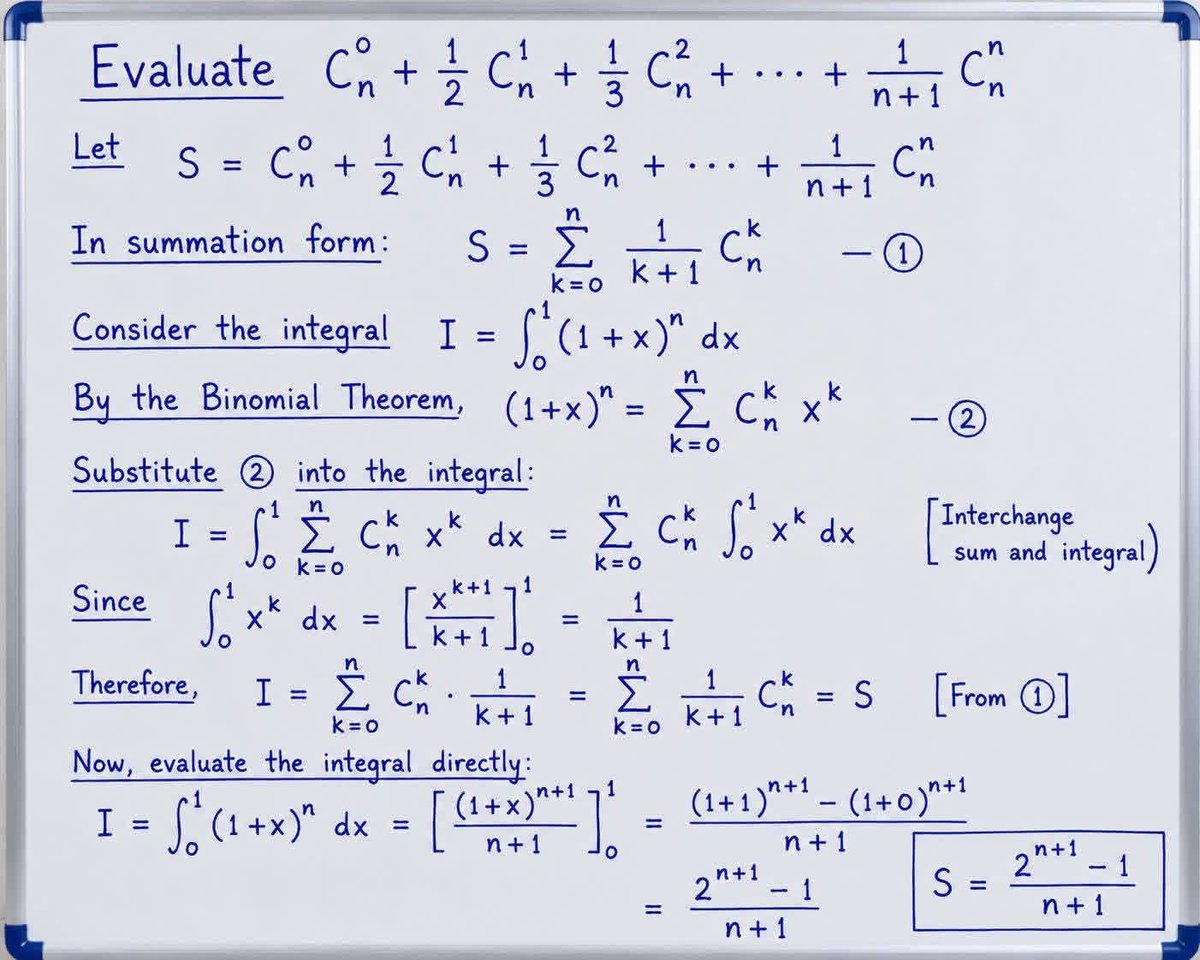 Evaluate C_n^0 + 1/2 C_n^1 + 1/3 C_n^2 + ··· + 1/(n+1) C_n^n
Let S = C_n^0 + 1/2 C_n^1 + 1/3 C_n^2 + ··· + 1/(n+1) C_n^n
In summation form: S = ∑_{k=0}^{n} 1/(k+1) C_n^k — ①
Consider the integral I = ∫_0^1 (1+x)^n dx
By the Binomial Theorem, (1+x)^n = ∑_{k=0}^{n} C_n^k x^k — ②
Substitute ② into the integral:
I = ∫_0^1 ∑_{k=0}^{n} C_n^k x^k dx = ∑_{k=0}^{n} C_n^k ∫_0^1 x^k dx [Interchange sum and integral)
Since ∫_0^1 x^k dx = [x^{k+1}/(k+1)]_0^1 = 1/(k+1)
Therefore, I = ∑_{k=0}^{n} C_n^k · 1/(k+1) = ∑_{k=0}^{n} 1/(k+1) C_n^k = S [From ①]
Now, evaluate the integral directly:
I = ∫_0^1 (1+x)^n dx = [(1+x)^{n+1}/(n+1)]_0^1 = ((1+1)^{n+1} − (1+0)^{n+1})/(n+1)
= (2^{n+1} − 1)/(n+1)
S = (2^{n+1} − 1)/(n+1)